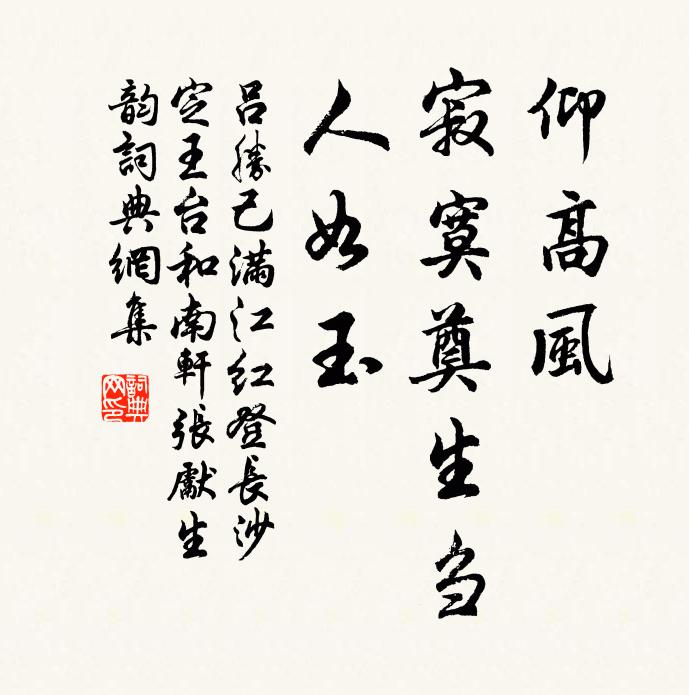 仰高風
寂寞奠生刍
人如玉
吕勝己滿江红登長沙
定王台和南軒張獻生
韵詞典網集
詞典网印